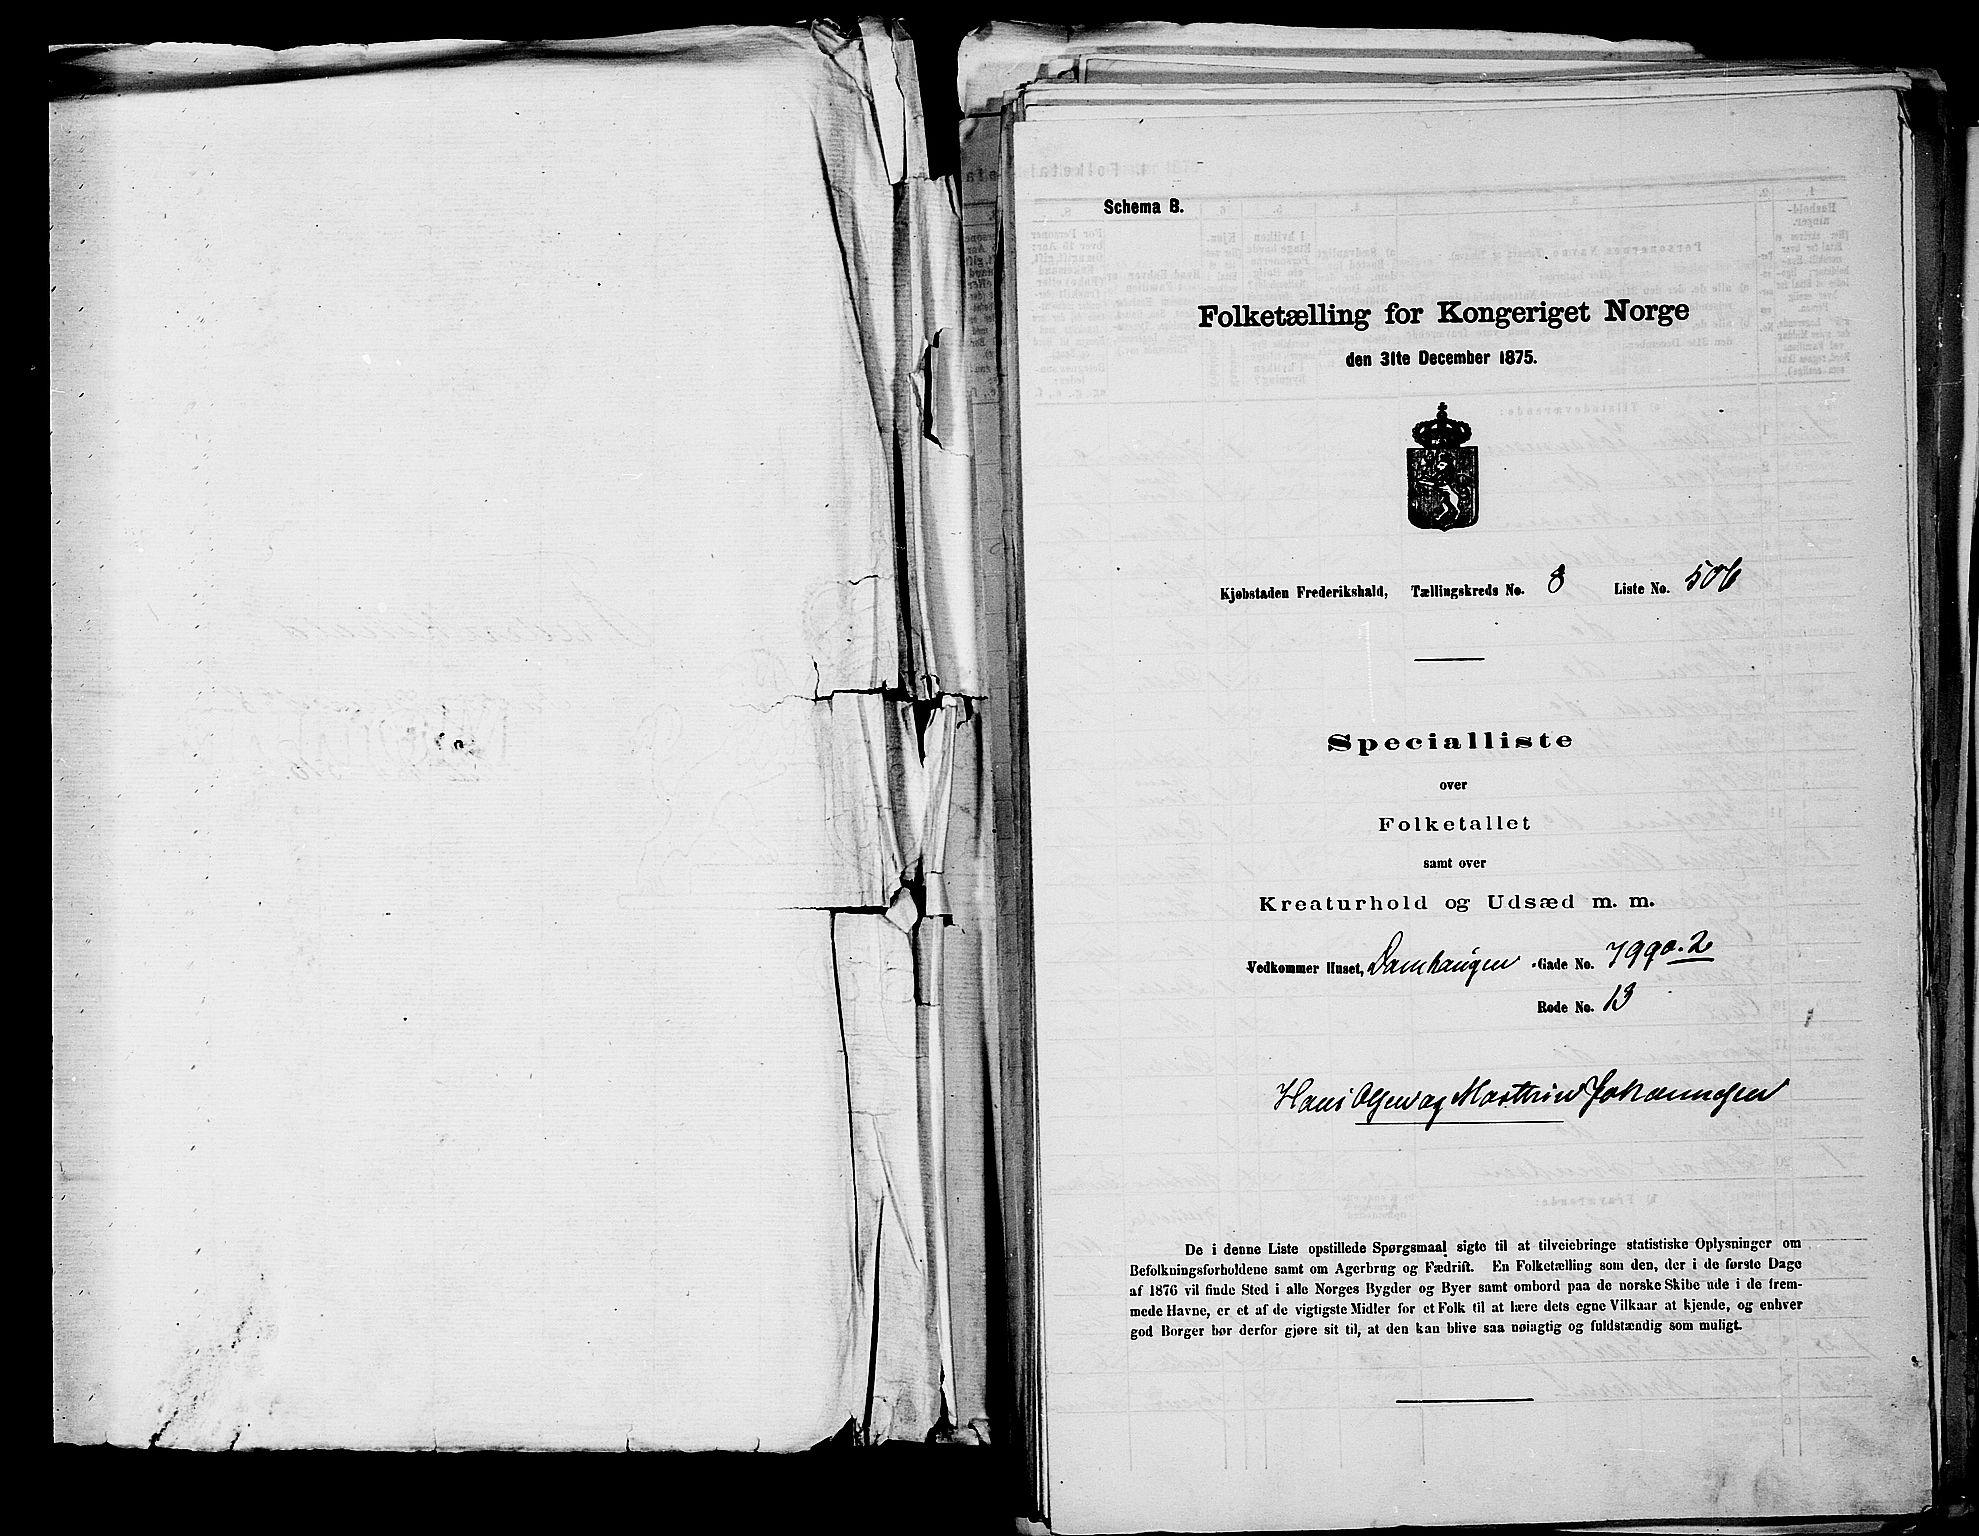 Schema B.
Folketælling for Kongeriget Norge
den 31te December 1875.
Kjøbstaden Frederikshald, Tællingskreds No. 8 Liste No. 506
Specialliste
over
Folketallet
samt over
Kreaturhold og Udsæd m. m.
Vedkommer Huset, Damhaugen -Gade No. 799a.2
Rode No. 13
Hans Olsen og Mathias Johannesen
De i denne Liste opstillede Spørgsmaal sigte til at tilveiebringe statistiske Oplysninger om
Befolkningsforholdene samt om Agerbrug og Fædrift. En Folketælling som den, der i de første Dage
af 1876 vil finde Sted i alle Norges Bygder og Byer samt ombord paa de norske Skibe ude i de frem-
mede Havne, er et af de vigtigste Midler for et Folk til at lære dets egne Vilkaar at kjende, og enhver
god Borger bør derfor gjøre sit til, at den kan blive saa nøiagtig og fuldstændig som muligt.